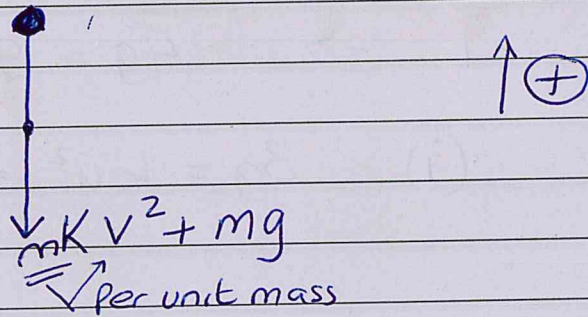 +
mKv² + mg
per unit mass